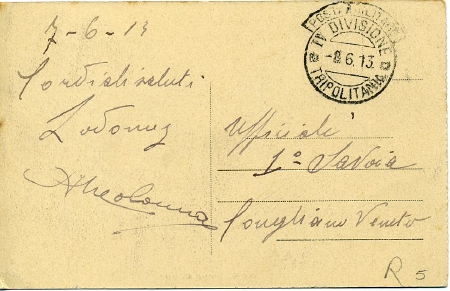 7-6-13
Cordiali saluti
POSTA MILITARE
IV DIVISIONE
-8.6.13.
TRIPOLITANIA
Ufficiale
1° Savoia
Conegliano Veneto
R 5